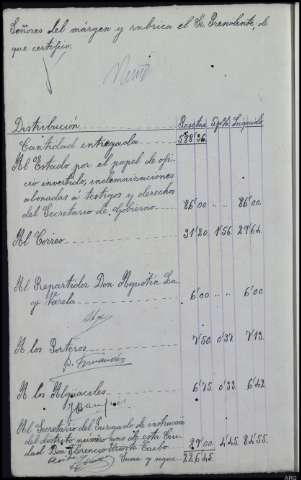 Señores del márgen y rubrica el Sr. Presidente, de
que certifico.
Distribución Pesetas Dpto. Líquido
Cantidad entregada 588'96
Al Estado por el papel de ofi-
cio invertido, indemnizaciones
abonadas á testigos y derechos
del Secretario de Gobierno 86'00 " " 86'00
Al Correo 31'20 1'56 29'64
Al Repartidor Don Agustín
y Varela 6'00 " " 6'00
A los Porteros 7'50 0'37 7'13
A los Alguaciles 6'75 0'33 6'42
Al Secretario del Juzgado de instrucción
del distrito número uno de esta Ciu-
dad Don Florencio 89'00 4'45 84'55
Suma y sigue 226'45